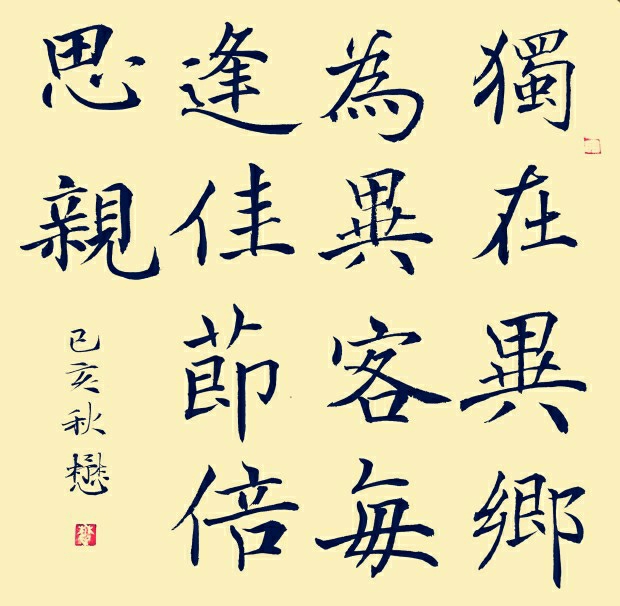 獨在異鄉
為異客每
逢佳節倍
思親
己亥秋懋